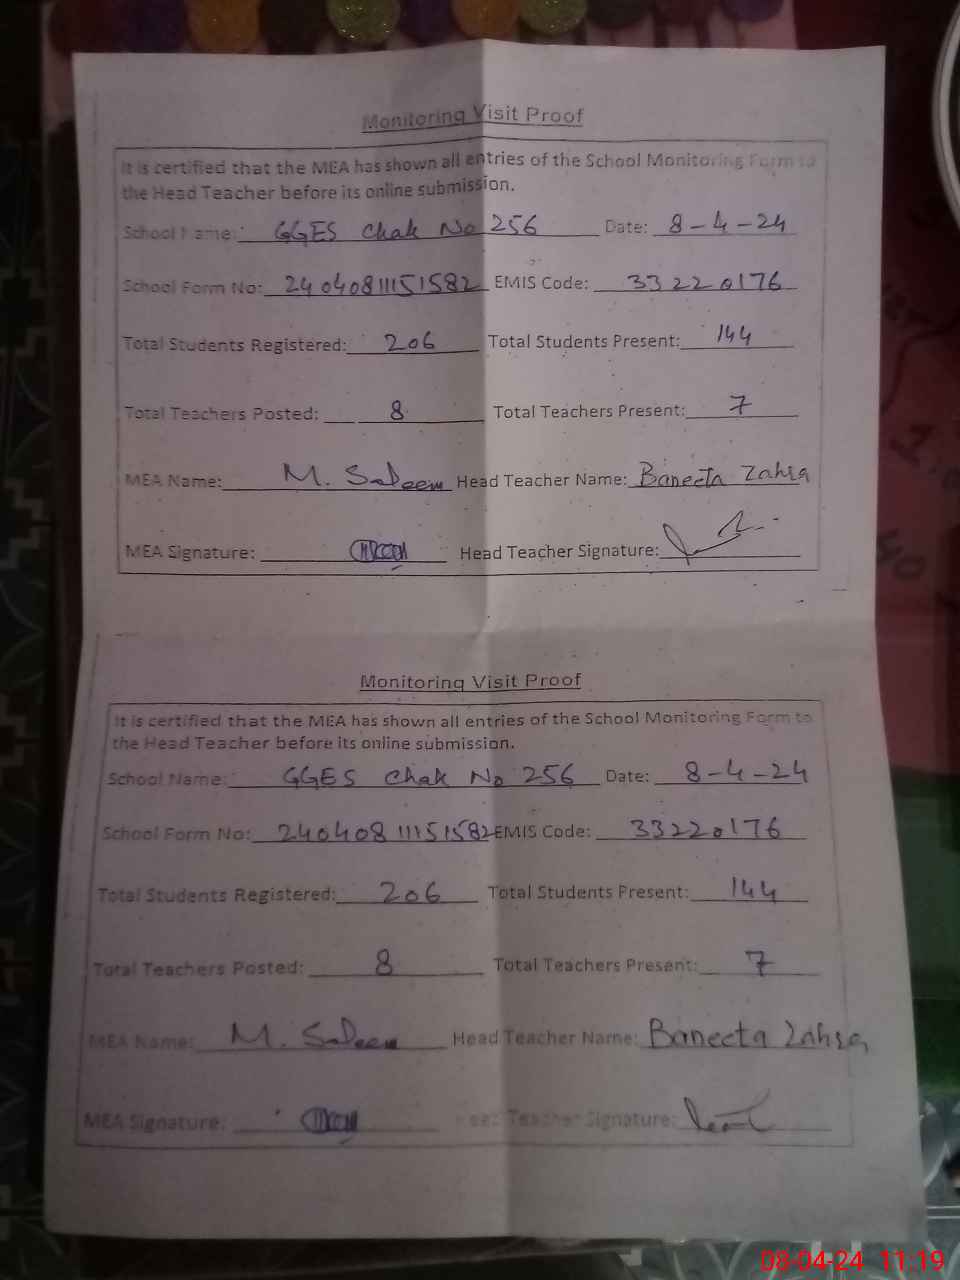 Monitoring Visit Proof
It is certified that the MEA has shown all entries of the School Monitoring Form to
the Head Teacher before its online submission.
School Name: GGES Chak No 256 Date: 8-4-24
School Form No: 24040811151582 EMIS Code: 33220176
Total Students Registered: 206 Total Students Present: 144
Total Teachers Posted: 8 Total Teachers Present: 7
MEA Name: M. Saleem Head Teacher Name: Baneeta Zahra
MEA Signature: Head Teacher Signature:
Monitoring Visit Proof
It is certified that the MEA has shown all entries of the School Monitoring Form to
the Head Teacher before its online submission.
School Name: GGES Chak No 256 Date: 8-4-24
School Form No: 24040811151582 EMIS Code: 33220176
Total Students Registered: 206 Total Students Present: 144
Total Teachers Posted: 8 Total Teachers Present: 7
MEA Name: M. Saleem Head Teacher Name: Baneeta Zahra
MEA Signature: Head Teacher Signature:
08-04-24 11:19